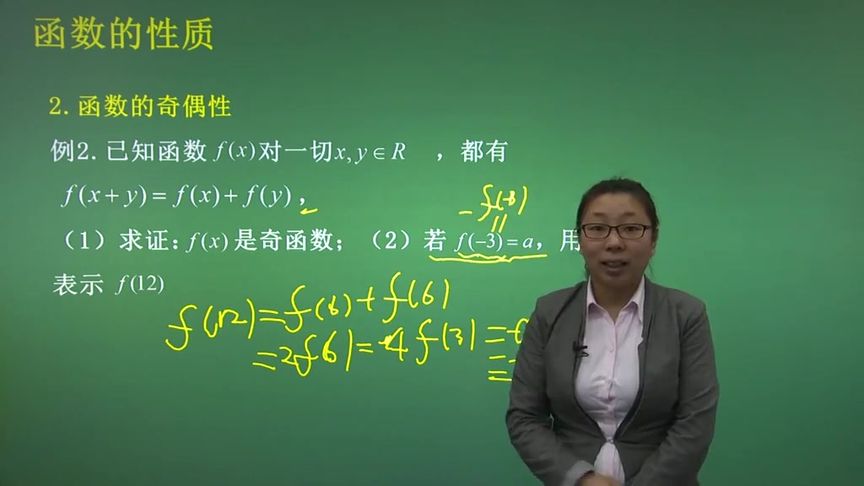 函数的性质
2.函数的奇偶性
例2.已知函数 f(x)对一切x,y∈R ，都有
f(x+y)=f(x)+f(y)，
-f(-3)
（1）求证：f(x)是奇函数；（2）若 f(-3)=a，用
表示 f(12)
f(12)=f(6)+f(6)
=2f(6)=4f(3)=
=
=